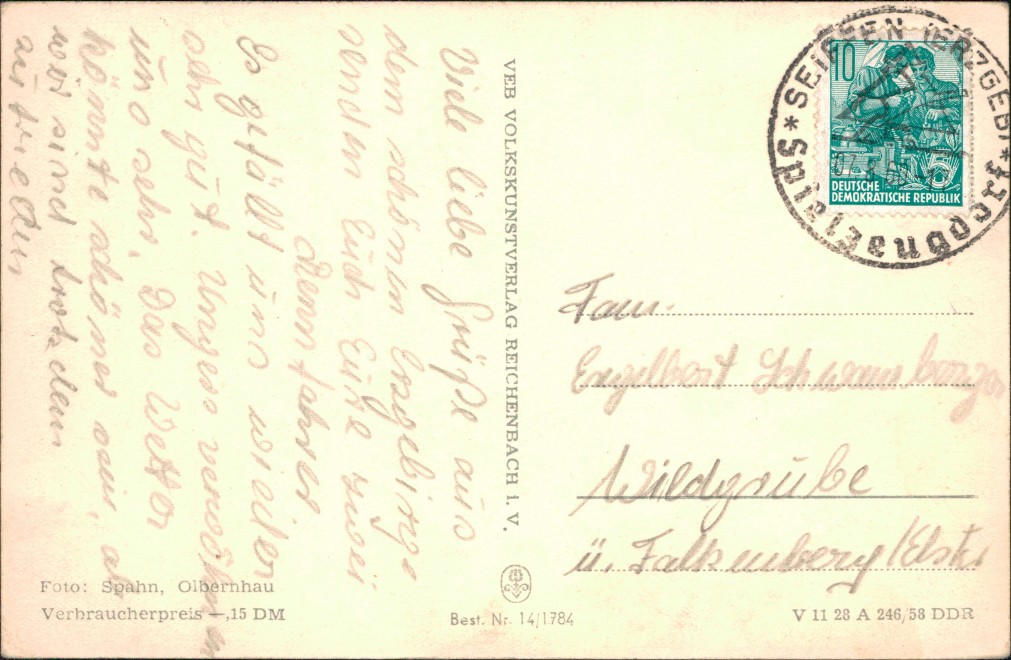 Viele liebe Grüße aus
dem schönen Erzgebirge
senden Euch Eure zwei
Rennfahrer
Es gefällt uns wieder
sehr gut. Ungers verwöhnen
uns sehr. Das Wetter
könnte schöner sein, ab
wir sind trotzdem
zufrieden
VEB VOLKSKUNSTVERLAG REICHENBACH i. V.
10
5
DEUTSCHE
DEMOKRATISCHE REPUBLIK
* SEIFFEN (ERZGEB) *
Spielzeugdorf
Fam.
Engelbert Schwarzburger
Wildgrube
ü. Falkenberg/Elster
Foto: Spahn, Olbernhau
Verbraucherpreis —,15 DM
Best. Nr. 14/1784
V 11 28 A 246/58 DDR